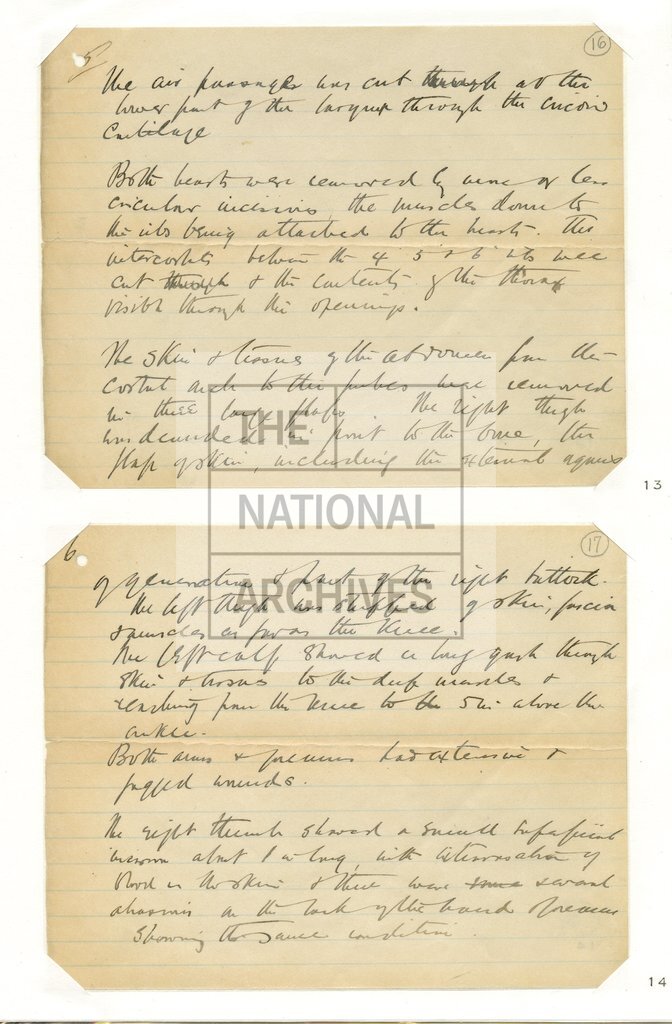 5
16
The air passage was cut through at the
lower part of the larynx through the cricoid
cartilage
Both breasts were removed by more or less
circular incisions, the muscles down to
the ribs being attached to the breasts. The
intercostals between the 4 5 & 6 ribs were
cut through & the contents of the thorax
visible through the openings.
The skin & tissues of the abdomen from the
costal arch to the pubes were removed
in three large flaps. The right thigh
was denuded in front to the bone, the
flap of skin, including the external organs
13
6
17
of generation & part of the right buttock.
The left thigh was stripped of skin, fascia
& muscles as far as the knee.
The left calf showed a long gash through
skin & tissues to the deep muscles &
reaching from the knee to 5 in above the
ankle.
Both arms & forearms had extensive &
jagged wounds.
The right thumb showed a small superficial
incision about 1 in long, with extravasation of
blood in the skin & there were some several
abrasions on the back of the hand & forearm
showing the same condition.
14
THE
NATIONAL
ARCHIVES